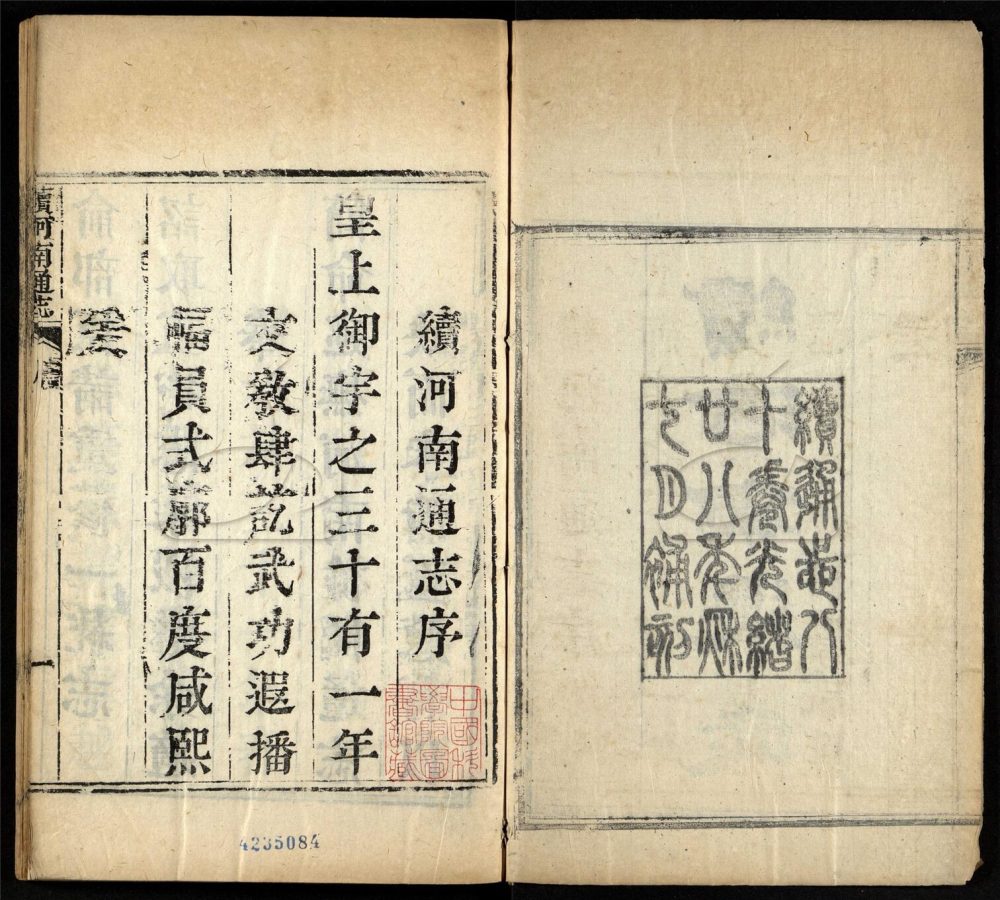 續通志八
十卷光緒
廿八年秋
七月補
續河南通志序
皇上御宇之三十有一年
文教肆訖武功遐播
幅員式廓百度咸熙
續河南通志
序
一
中國科
學院圖
書館藏
4235084